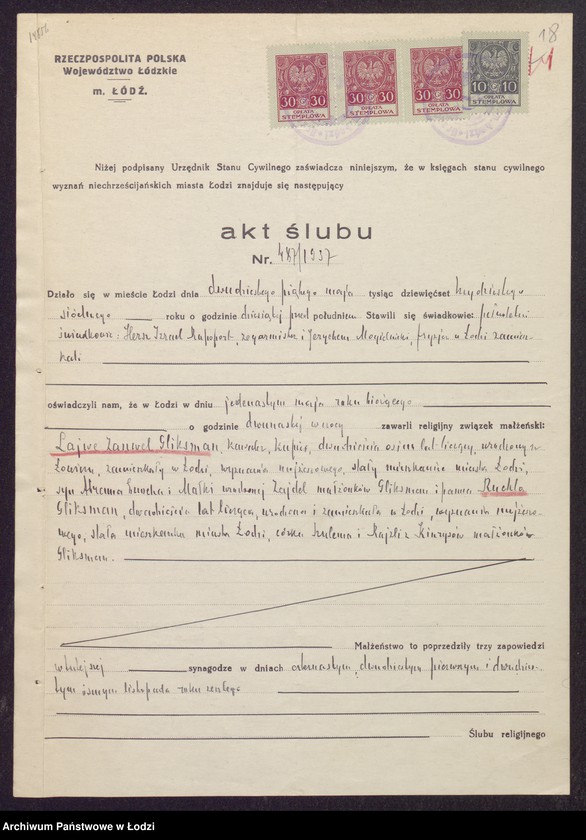 18
RZECZPOSPOLITA POLSKA
Województwo Łódzkie
m. ŁÓDŹ.
30 30
OPŁATA
STEMPLOWA
30 30
OPŁATA
STEMPLOWA
30 30
OPŁATA
STEMPLOWA
10 10
OPŁATA
STEMPLOWA
Niżej podpisany Urzędnik Stanu Cywilnego zaświadcza niniejszym, że w księgach stanu cywilnego
wyznań niechrześcijańskich miasta Łodzi znajduje się następujący
akt ślubu
Nr. 487/1937
Działo się w mieście Łodzi dnia dwudziestego piątego maja tysiąc dziewięćset trzydziestego
siódmego roku o godzinie dziesiątej przed południem. Stawili się świadkowie: pełnoletni
świadkowie: Hersz Izrael Rapoport, zegarmistrz i Jerychem Mogileński, fryzjer w Łodzi zamiesz-
kali
oświadczyli nam, że w Łodzi w dniu jedenastym maja roku bieżącego
o godzinie dwunastej w nocy zawarli religijny związek małżeński:
Lajwe Zanwel Gliksman, kawaler, kupiec, dwadzieścia osiem lat liczący, urodzony w
Łowiczu, zamieszkały w Łodzi, wyznania mojżeszowego, stały mieszkaniec miasta Łodzi,
syn Abrama Enocha i Małki urodzonej Zajdel małżonków Gliksman i panna Ruchla
Gliksman, dwadzieścia lat licząca, urodzona i zamieszkała w Łodzi, wyznania mojżeszo-
wego, stała mieszkanka miasta Łodzi, córka Szulema i Rajzli z małżonków
Gliksman.
Małżeństwo to poprzedziły trzy zapowiedzi
w tutejszej synagodze w dniach czternastym, dwudziestym pierwszym i dwudzies-
tym ósmym listopada roku zeszłego
Ślubu religijnego
Archiwum Państwowe w Łodzi